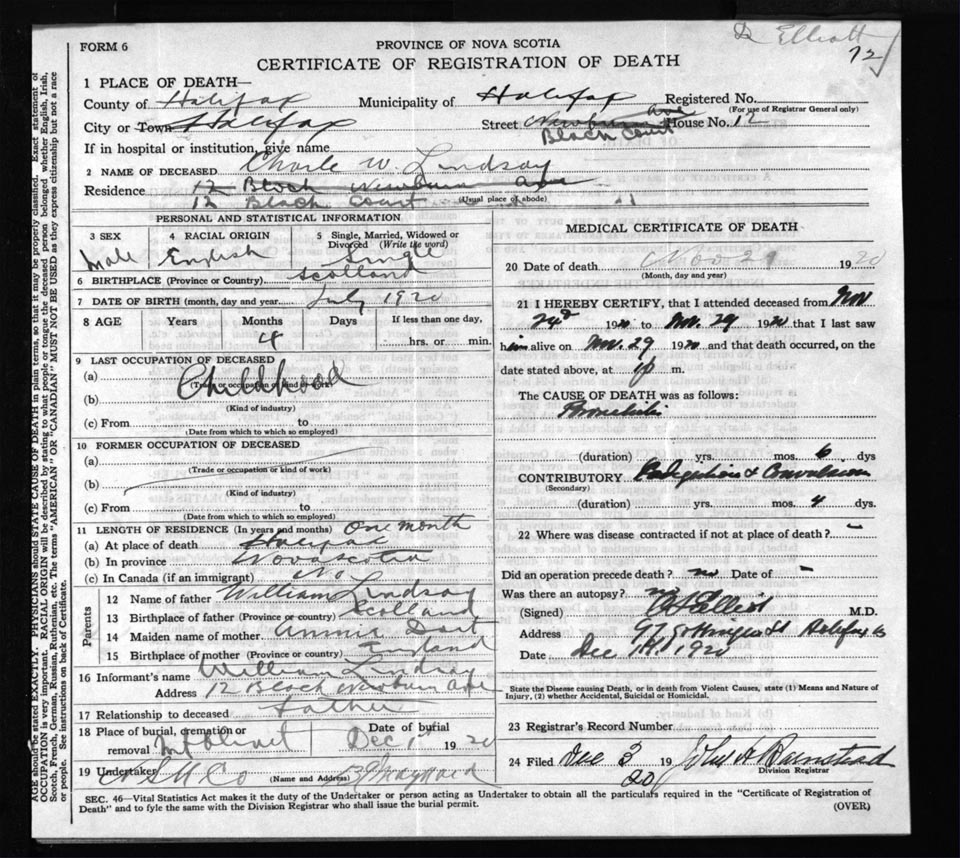 Dr Elliott
72
FORM 6
PROVINCE OF NOVA SCOTIA
CERTIFICATE OF REGISTRATION OF DEATH
1 PLACE OF DEATH—
County of Halifax Municipality of Halifax Registered No.
(For use of Registrar General only)
City or Town Halifax Street Newburn Ave House No. 12
Black Court
If in hospital or institution, give name
2 NAME OF DECEASED Charle W. Lindsay
Residence 12 Block Newburn ave
(Usual place of abode)
12 Black Court
PERSONAL AND STATISTICAL INFORMATION
3 SEX Male
4 RACIAL ORIGIN English
5 Single, Married, Widowed or Divorced (Write the word) Single
6 BIRTHPLACE (Province or Country) Scotland
7 DATE OF BIRTH (month, day and year) July 1920
8 AGE Years Months Days If less than one day,
4 hrs. or min.
9 LAST OCCUPATION OF DECEASED
(a) Childhood
(Trade or occupation or kind of work)
(b)
(Kind of industry)
(c) From to
(Date from which to which so employed)
10 FORMER OCCUPATION OF DECEASED
(a)
(Trade or occupation or kind of work)
(b)
(Kind of industry)
(c) From to
(Date from which to which so employed)
11 LENGTH OF RESIDENCE (In years and months) One month
(a) At place of death Halifax
(b) In province Nova Scotia
(c) In Canada (if an immigrant) No
Parents
12 Name of father William Lindsay
13 Birthplace of father (Province or country) Scotland
14 Maiden name of mother Annie Dart
15 Birthplace of mother (Province or country) England
16 Informant's name William Lindsay
Address 12 Block Newburn Ave
17 Relationship to deceased Father
18 Place of burial, cremation or removal Mt Olivet
Date of burial Dec 1 1920
19 Undertaker
(Name and Address)
MEDICAL CERTIFICATE OF DEATH
20 Date of death Nov 29 1920
(Month, day and year)
21 I HEREBY CERTIFY, that I attended deceased from Nov
24 1920 to Nov. 29 1920 that I last saw
him alive on Nov. 29 1920 and that death occurred, on the
date stated above, at 1 p m.
The CAUSE OF DEATH was as follows:
Bronchitis
(duration) yrs. mos. 6 dys
CONTRIBUTORY & Convulsions
(Secondary)
(duration) yrs. mos. 4 dys.
22 Where was disease contracted if not at place of death? -
Did an operation precede death? no Date of -
Was there an autopsy? no
(Signed) Elliott M.D.
Address 97 Gottingen St Halifax
Date Dec 1st 1920
State the Disease causing Death, or in death from Violent Causes, state (1) Means and Nature of
Injury, (2) whether Accidental, Suicidal or Homicidal.
23 Registrar's Record Number
24 Filed Dec 3 1920
Division Registrar
SEC. 46—Vital Statistics Act makes it the duty of the Undertaker or person acting as Undertaker to obtain all the particulars required in the "Certificate of Registration of
Death" and to fyle the same with the Division Registrar who shall issue the burial permit.
(OVER)
AGE should be stated EXACTLY. PHYSICIANS should STATE CAUSE OF DEATH in plain terms, so that it may be properly classified. Exact statement of
OCCUPATION is very important. RACIAL ORIGIN will be described by stating to what people or tongue the deceased person belonged, whether English, Irish,
Scotch, French, German, Russian, Ruthenian, etc. The terms "AMERICAN" OR "CANADIAN" MUST NOT BE USED as they express citizenship but not a race
or people. See instructions on back of Certificate.